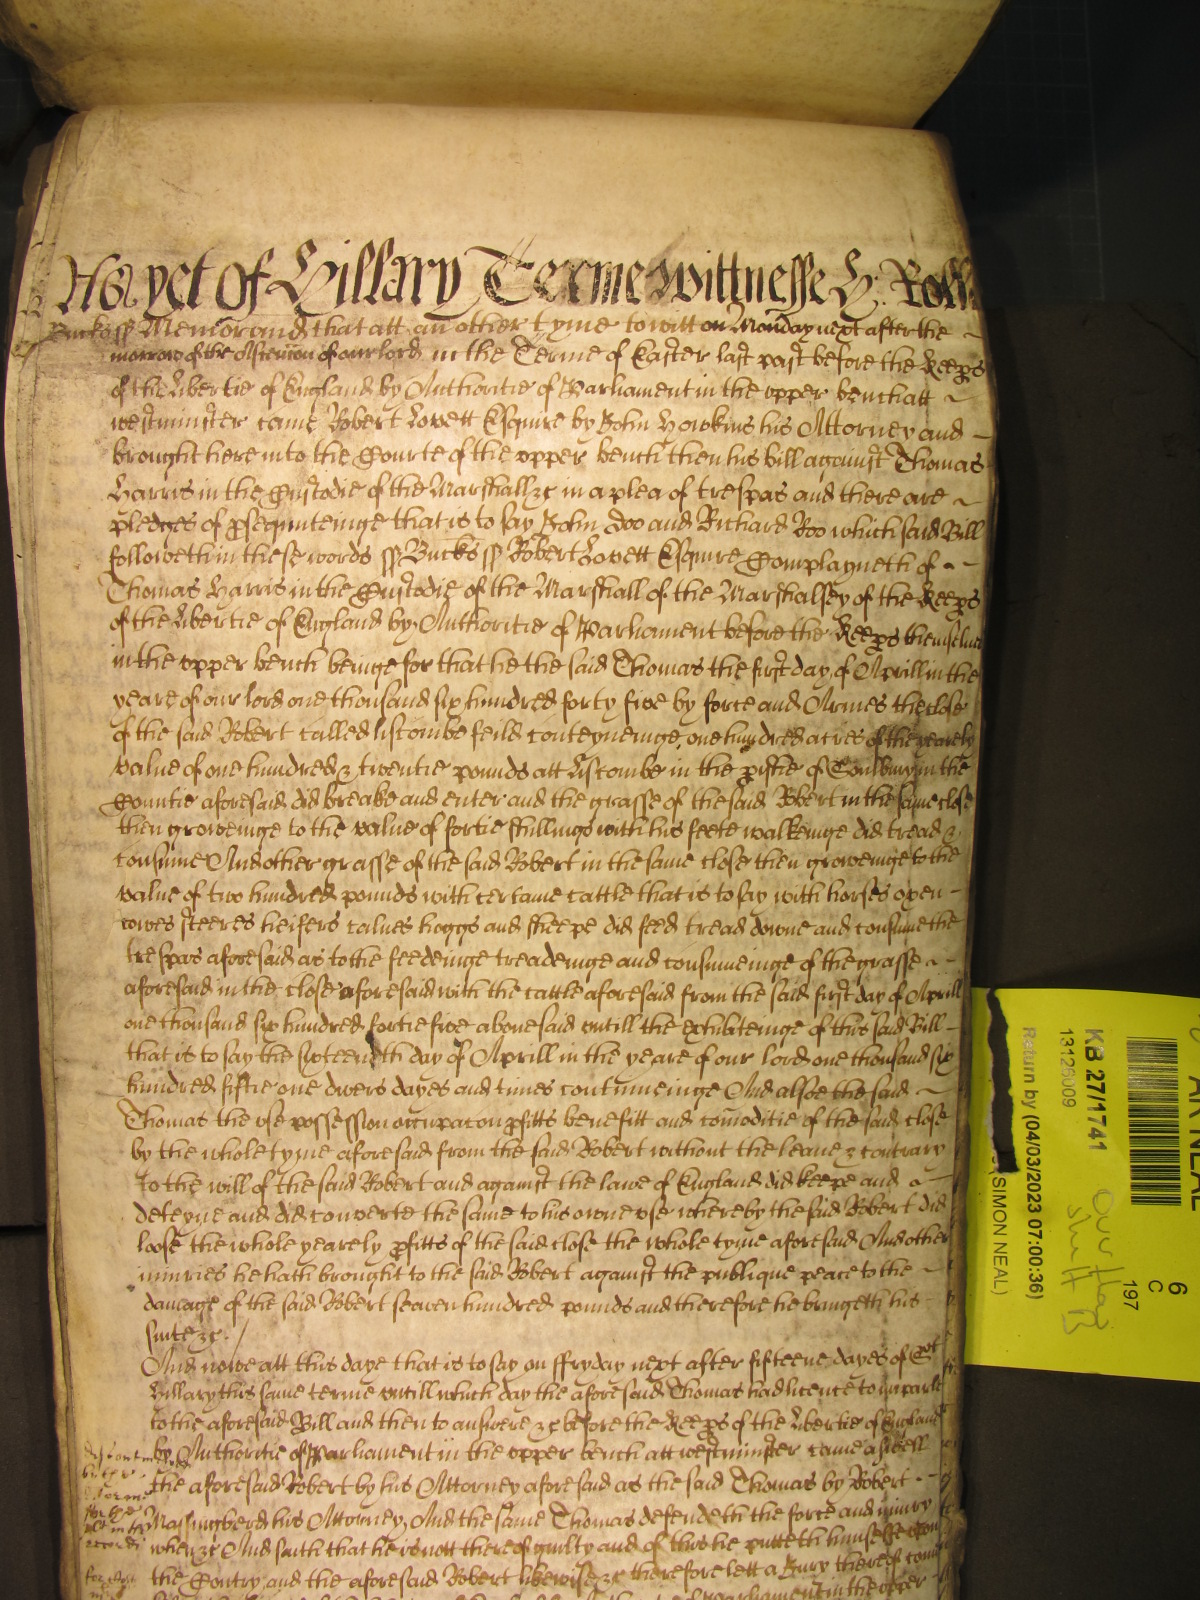 As yet of Hillary Terme Wittnesse H: Rolle
Bucks ss Memorand that att an other tyme to witt on Monday next after the
morrow of the Ascencion of our lord in the Terme of Easter last past before the Keeps
of the libertie of England by Authoritie of Parliament in the upper bench att
westminster came Robert Lovett Esquire by John Hawkins his Attorney and
brought here into the Courte of the upper bench then his bill against Thomas
Harris in the Custodie of the Marshall &c in a plea of trespas and there are
pledges of psequuteinge that is to say John Doo and Richard Roo which said Bill
followeth in these words ss Bucks ss Robert Lovett Esquire Complayneth of
Thomas Harris in the Custodie of the Marshall of the Marshalsey of the Keeps
of the libertie of England by Authoritie of Parliament before the Keeps themselves
in the upper bench beinge for that he the said Thomas the first day of Aprill in the
yeare of our lord one thousand six hundred forty five by force and Armes the close
of the said Robert called liscombe feild conteyneinge one hundred acres of the yearely
value of one hundred & twentie pounds att Liscombe in the pishe of Soulbury in the
Countie aforesaid did breake and enter and the grasse of the said Robert in the same close
then groweinge to the value of fortie shillings with his feete walkeinge did tread &
consume And other grasse of the said Robert in the same close then groweinge to the
value of two hundred pounds with certaine cattle that is to say with horses oxen
cowes steeres heifers calves hoggs and sheepe did feed tread downe and consume the
trespas aforesaid as to the feedeinge treadeinge and consumeinge of the grasse
aforesaid in the close aforesaid with the cattle aforesaid from the said first day of Aprill
one thousand six hundred fortie five abovesaid untill the exhibiteinge of this said Bill
that is to say the sixteenth day of Aprill in the yeare of our lord one thousand six
hundred fiftie one divers dayes and times contynueinge And alsoe the said
Thomas the use possession occupacon pfitts benefitt and comoditie of the said close
by the whole tyme aforesaid from the said Robert without the leave & contrary
to the will of the said Robert and against the lawe of England did keepe and
deteyne and did converte the same to his owne use whereby the said Robert did
loose the whole yearely pfitts of the said close the whole tyme aforesaid And other
iniuries he hath brought to the said Robert against the publique peace to the
damage of the said Robert seaven hundred pounds and therefore he bringeth his
suite &c.
And nowe att this daye that is to say on ffryday next after fifteene dayes of St
Hillary this same terme untill which day the aforesaid Thomas had licence to imparle
to the aforesaid Bill and then to answere &c before the Keeps of the libertie of England
by Authoritie of Parliament in the upper bench att westminster came aswell
the aforesaid Robert by his Attorney aforesaid as the said Thomas by Robert
Massingberd his Attorney And the same Thomas defendeth the force and iniury
when &c And saith that he is nott thereof guilty and of this he putteth himselfe upon
the Contry and the aforesaid Robert likewise &c therefore lett a Jury thereof come
KB 27/1741
13126009
Return by (04/03/2023 07:00:36)
(SIMON NEAL)
6
C
197